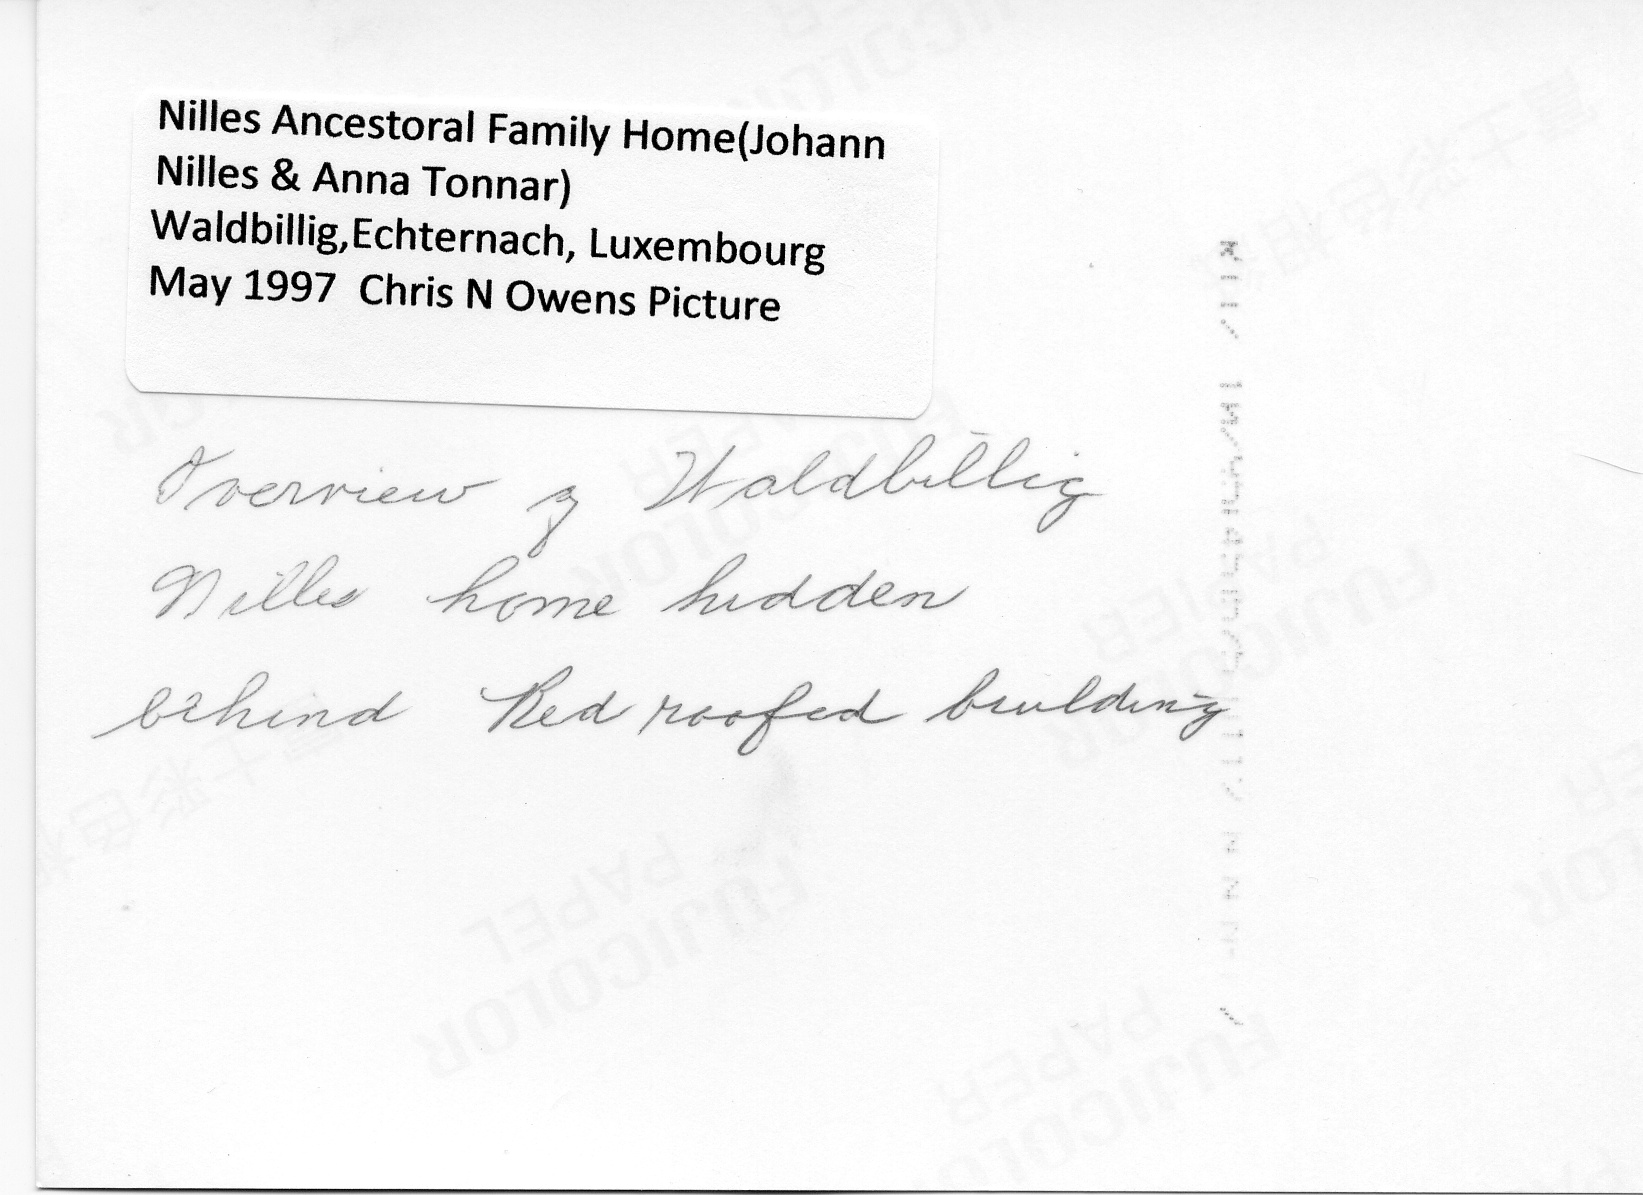 Nilles Ancestoral Family Home(Johann
Nilles & Anna Tonnar)
Waldbillig,Echternach, Luxembourg
May 1997  Chris N Owens Picture
Overview of Waldbillig
Nilles home hidden
behind Red roofed building
FUJICOLOR
PAPER
FUJICOLOR
PAPIER
FUJICOLOR
PAPEL
FUJICOLOR
PAPER